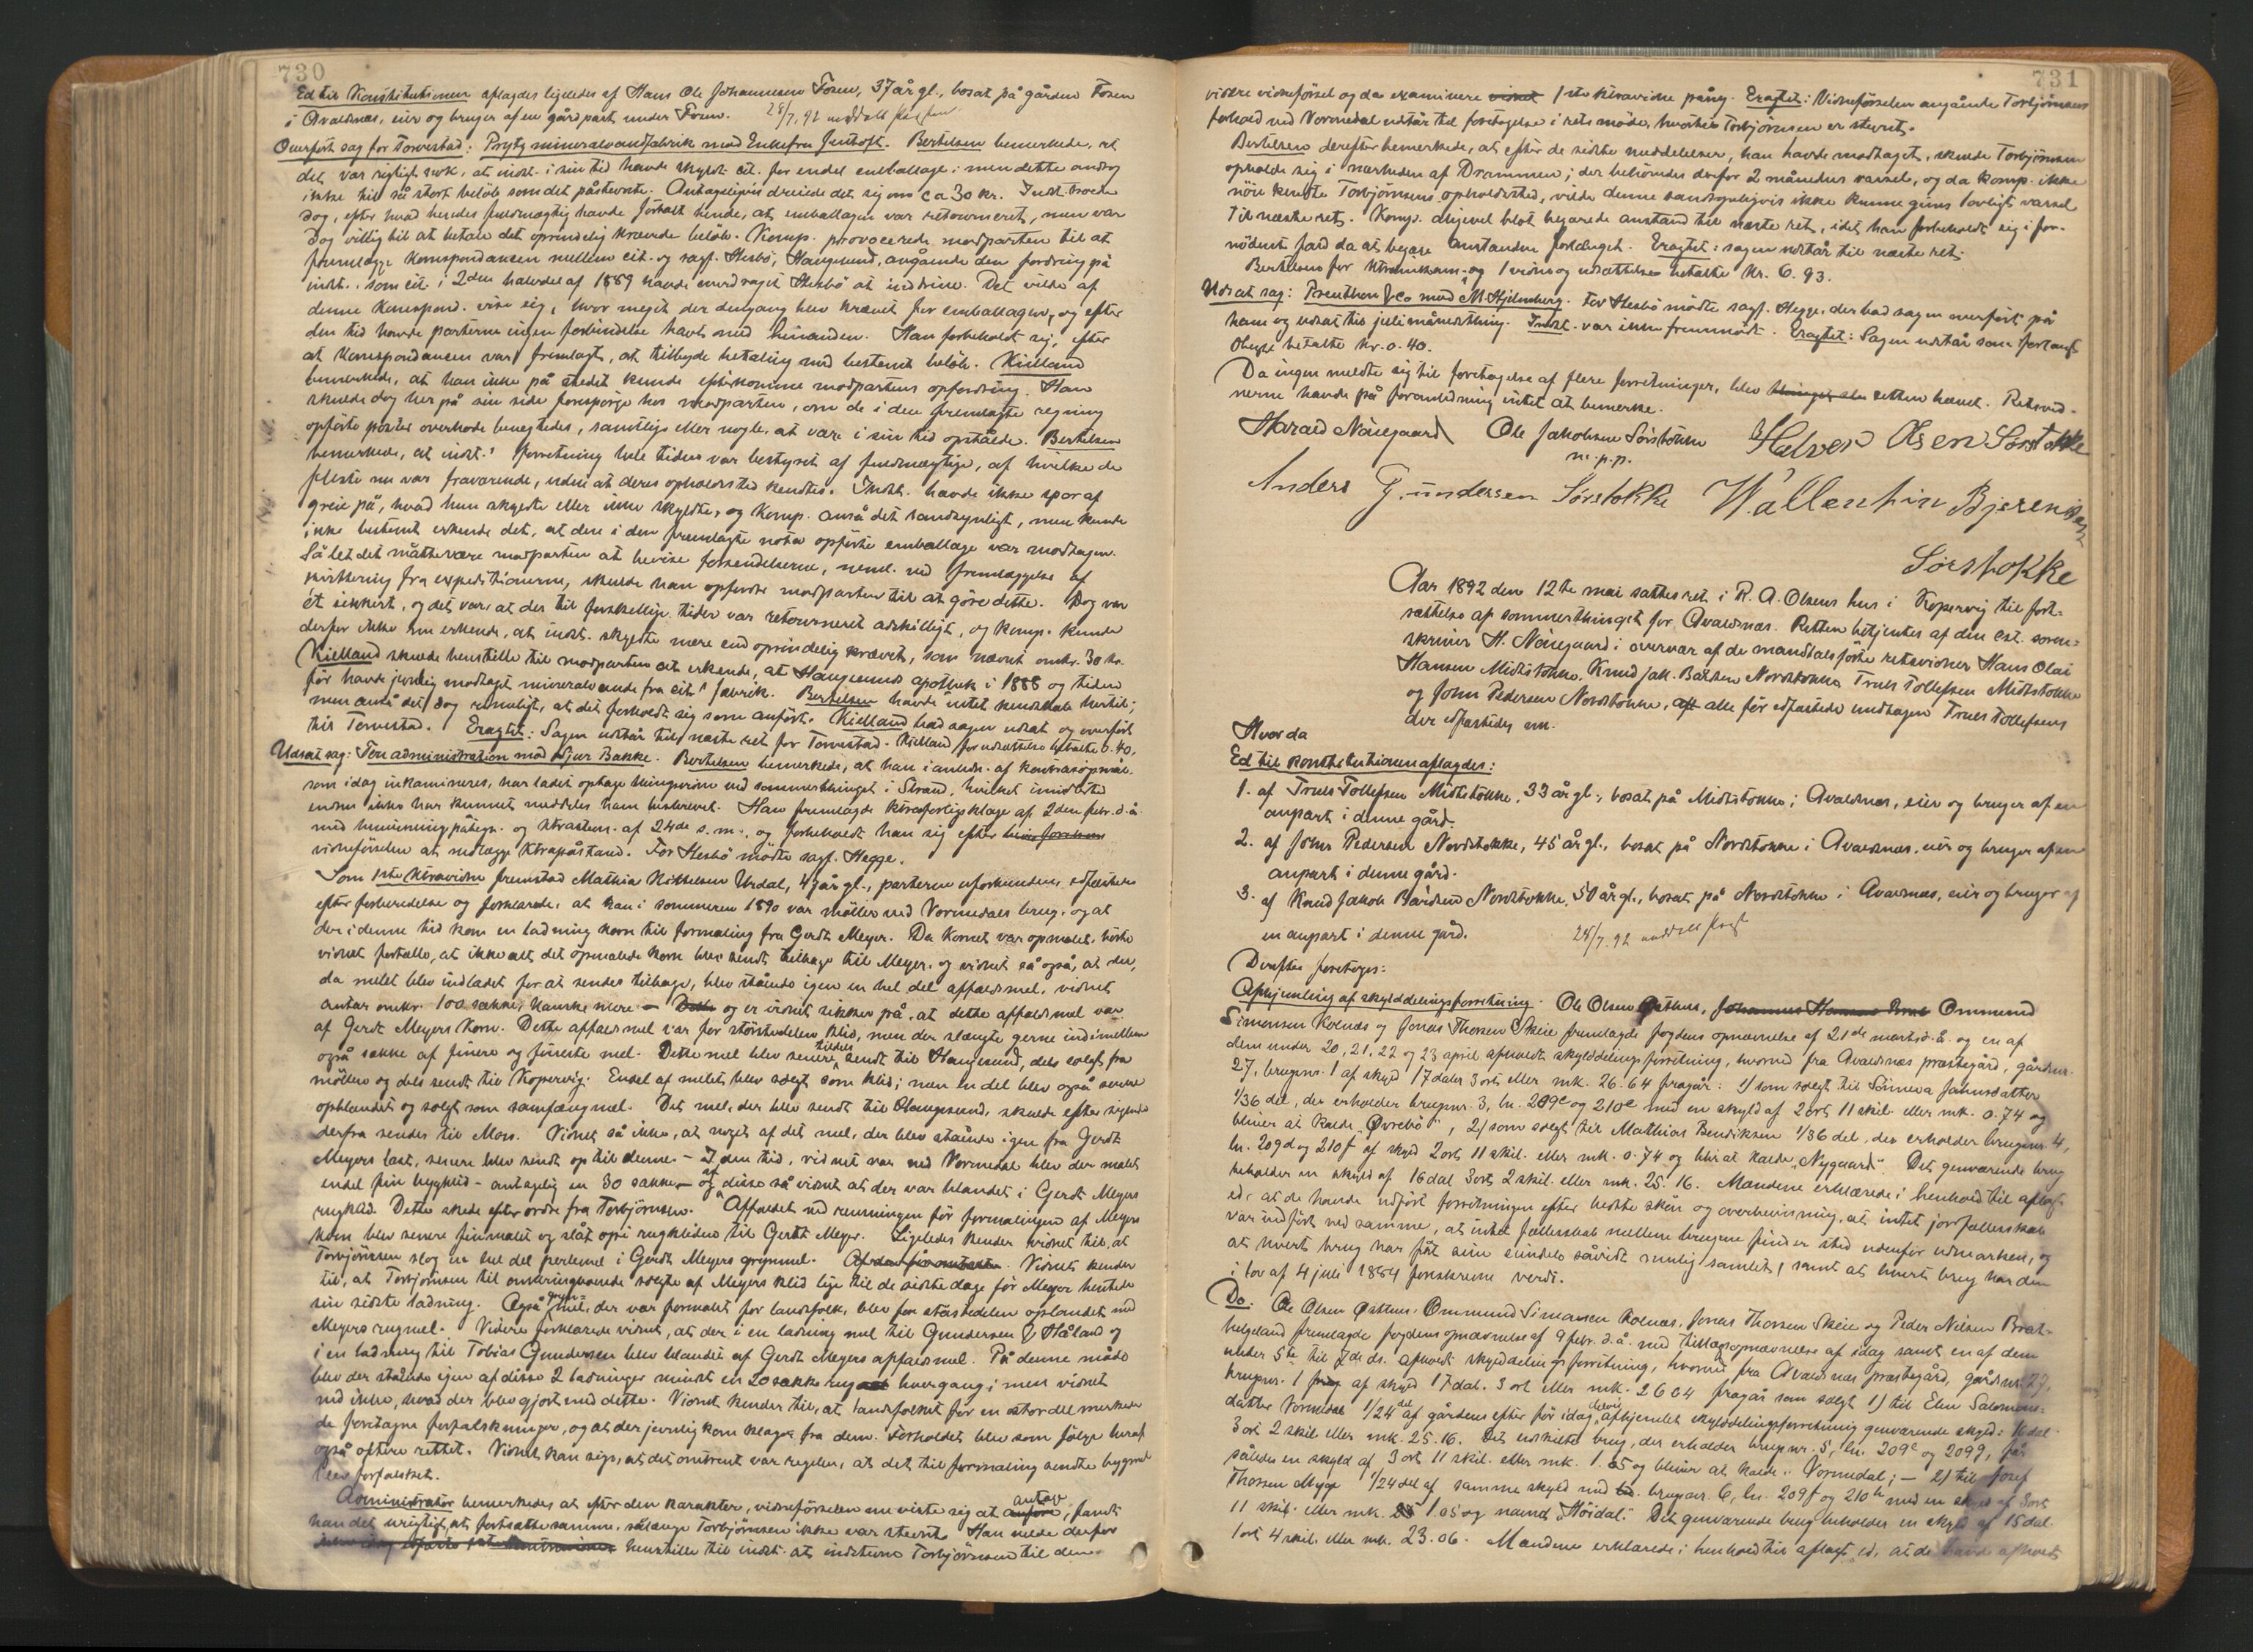 730
Ed til Konstitutionen aflagdes ligeledes af Hans Ole Johannesen Fosen, 37 år gl., bosat på gården Fosen
i Avaldsnæs, eier og bruger af en gårdpart under Fosen. 28/7. 92 meddelt
Overført sag for Torvestad: Prytz mineralvandfabrik mod Enkefru Jentoft. Bertelsen bemerkede, at
det var rigtigt nok, at indst. i sin tid havde skyldt cit. for endel emballage; men dette androg
ikke til så stort beløb som det påstevnte. Antageligvis dreiede det sig om ca 30 kr. Indst. troede
dog, efter hvad hendes fuldmægtig havde fortalt hende, at emballagen var retourneret, men var
dog villig til at betale det oprindelig krævede beløb. Komp. provocerede modparten til at
fremlægge korrespondancen mellem cit. og sagf. Hesbö, Haugesund, angaaende den fordring på
indst. som cit. i 2den halvdel af 1889 havde overdraget Hesbö at inddrive. Det vilde af
denne korrespond. vise sig, hvor meget der dengang blev krævet for emballagen, og efter
den tid havde parterne ingen forbindelse havt med hinanden. Han forbeholdt sig, efter
at korrespondancen var fremlagt, at tilbyde betaling med bestemt beløb. Kielland
bemerkede, at han ikke på stedet kunde efterkomme modpartens opfordring. Han
skulde dog her på sin side forespørge hos modparten, om de i den fremlagte regning
opførte poster overhode benegtedes, samtlige eller nogle, at være i sin tid opståede. Bertelsen
bemerkede, at indst.s forretning hele tiden var bestyret af fuldmægtige, af hvilke de
fleste nu var fraværende, uden at deres opholdssted kendtes. Indst. havde ikke spor af
greie på, hvad hun skyldte eller ikke skyldte, og Komp. anså det sandsynligt, men kunde
ikke bestemt erkende det, at den i den fremlagte nota opførte emballage var modtagen.
Så let det måtte være modparten at bevise forsendelserne, neml. ved fremlæggelse af
kvittering fra expeditionerne, skulde han opfordre modparten til at gjøre dette. Dog var
ét sikkert, og det var, at der til forskellige tider var retourneret adskilligt, og Komp. kunde
derfor ikke nu erkende, at indst. skyldte mere end oprindelig krævet, som nævnt omkr. 30 kr.
Kielland skulde henstille til modparten at erkende, at Haugesunds apothek i 1888 og tiden
før havde jevnlig modtaget mineralvande fra cit.s fabrik. Bertelsen havde intet kendskab hertil;
men anså det dog rimeligt, at det forholdt sig som anført. Kielland bad sagen udsat og overført
til Torvestad. Eragtet: Sagen udstår til næste ret for Torvestad. Kielland for udsættelse betalte 0.40.
Udsat sag: administration mod Sjur Bakke. Bertelsen bemerkede, at han i anledn. af kontrasøgsmål.
som idag inkamineres, har ladet optage thingsvidne ved sommerthinget i Strand, hvilket imidlertid
endnu ikke har kunnet meddeles ham beskrevet. Han fremlagde ktraforligsklage af 2den febr. d.å.
med henvisning påtegn. og ktrastevn. af 24de s. m., og forbeholdt han sig efter
vidneførselen at nedlægge ktrapåstand. For Hesbö mødte sagf. Hegge.
Som 1ste ktravidne fremstod Mathias Mikkelsen Urdal, 49 år gl., parterne uforbunden, edfæstedes
efter forberedelse og forklarede, at han i sommeren 1890 var møller ved Vormedals brug, og at
der i denne tid kom en ladning korn til formaling fra Gerdt Meyer. Da kornet var opmalet, hørte
vidnet fortælle, at ikke alt det opmalede korn blev sendt tilbage til Meyer, og vidnet så også, at der,
da melet blev indladet for at sendes tilbage, blev stående igen en hel del affaldsmel, vidnet
antar omkr. 100 sække, kanske mere — og er vidnet sikker på, at dette affaldsmel var
af Gerdt Meyers korn. Dette affaldsmel var for størstedelen klid, men der slængte gerne ind imellem
også sække af finere og fineste mel. Dette mel blev senere tildels sendt til Haugesund, dels solgt fra
møllen og dels sendt til Kopervig. Endel af melet blev solgt som klid; men en del blev også senere
opblandet og solgt som samfængmel. Det mel, der blev sendt til Haugesund, skulde efter sigende
derfra sendes til Moss. Vidnet så ikke, at noget af det mel, der blev stående igen fra Gerdt
Meyers last, senere blev sendt op til denne. — I den tid, vidnet var ved Vormedal blev der malet
endel fin bygklid – antagelig en 30 sække – og af disse så vidnet at der var blandet i Gerdt Meyers
rugklid. Dette skede efter ordre fra Torbjörnsen. Affaldet ved rensningen før formalingen af Meyers
korn blev senere finmalet og slåt op i rugkliden til Gerdt Meyer. Ligeledes kender vidnet til, at
Torbjörnsen slog en hel del perlemel i Gerdt Meyers grynmel. Vidnet kender
til, at Torbjörnsen til omkringboende solgte af Meyers klid lige til de sidste dage før Meyer hentede
sin sidste ladning. Også mel, der var formalet for landsfolk, blev for størstedelen opblandet med
Meyers rugmel. Videre forklarede vidnet, at der i en ladning mel til Gundersen & Håland og
i en ladning til Tobias Gundersen blev blandet af Gerdt Meyers affaldsmel. På denne måde
blev der stående igen af disse 2 ladninger mindst en 20 sække rug hver gang; men vidnet
ved ikke, hvad der blev gjort med dette. Vidnet kender til, at landsfolket for en stor del merkede
de foretagne forfalskninger, og at der jevnlig kom klager fra dem. Forholdet blev som følge heraf
også oftere rettet. Vidnet kan sige, at det omtrent var regelen, at det til formaling sendte bygmel
blev forfalsket.
Administrator bemerkedes at efter den karakter, vidneførselen nu viste sig at antage, fandt
han det urigtigt, at fortsætte samme, sålænge Torbjörnsen ikke var stevnt. Han vilde derfor
henstille til indst. at indstevne Torbjörnsen til den
731
videre vidneførsel og da examinere 1ste ktravidne påny. Eragtet: Vidneførselen angående Torbjörnsens
forhold ved Vormedal udstår til foretagelse i rets møde, hvortil Torbjörnsen er stevnt.
Bertelsen derefter bemerkede, at efter de sidste meddelelser, han havde modtaget, skulde Torbjörnsen
opholde sig i nærheden af Drammen; der behövedes derfor 2 måneders varsel, og da Komp. ikke
nöie kendte Torbjörnsens opholdssted, vilde denne sandsynligvis ikke kunne gives lovligt varsel
til næste ret. Komp. alligevel blot begærede anstand til næste ret, idet han forbeholdt sig i for-
nödent fald da at begære anstanden forlænget. Eragtet: sagen udstår til næste ret.
Bertelsen for ktrainkam. og 1 vidne og udsættelse betalte Kr. 6.93.
Udsat sag: Preuthun & Co mod M. Hjelmberg. For Hesbö mødte sagf. Hegge, der bad sagen overført på
ham og udsat til juli månedsthing. Indst. var ikke fremmødt. Eragtet: Sagen udstår som forlangt
Hegge betalte kr. 0.40.
Da ingen meldte sig til foretagelse af flere forretninger, blev retten hævet. Retsvid-
nerne havde på foranledning intet at bemerke.
Harald Nåiegaard Ole Jakobsen Sörstokke Halvor Olsen Sørstokke
m. p. p.
Anders Gundersen Sörstokke Wallentin Bjerendsen
Sörstokke
Aar 1892 den 12te mai sattes ret i R. A. Olsens hus i Kopervig til fort-
sættelse af sommerthinget for Avaldsnæs. Retten betjentes af den cst. soren-
skriver H. Nåiegaard i overvær af de mandtalsførte retsvidner Hans Olai
Hansen Midtstokke, Knud Jak. Bårdsen Nordstokke Truls Tollefsen Midtstokke
og John Pedersen Nordstokke, alle før edfæstede undtagen Truls Tollefsen
der edfæstedes nu.
Hvorda
Ed til konstitutionen aflagdes:
1. af Truls Tollefsen Midtstokke, 33 år gl., bosat på Midtstokke i Avaldsnæs, eier og bruger af en
anpart i denne gård.
2. af John Pedersen Nordstokke, 45 år gl., bosat på Nordstokke i Avaldsnæs, eier og bruger af en
anpart i denne gård.
3. af Knud Jakob Bårdsen Nordstokke, 50 år gl., bosat på Nordstokke i Avaldsnæs, eier og bruger af
en anpart i denne gård. 28/7. 92 meddelt
Derefter foretoges:
Afhjemling af skylddelingsforretning. Ole Olsen Østhus, Ommund
Simonsen Kolnæs og Jonas Thorsen Skeie fremlagde fogdens opnævnelse af 21de marts d. å. og en af
dem under 20, 21, 22 og 23 april afholdt skylddelingsforretning, hvorved fra Avaldsnæs præstegård, gårdsnr.
27, brugsnr. 1 af skyld 17 daler 3 ort eller mk. 26.64 fragår: 1) som solgt til Sönneva Jahnsdatter
1/36 del, der erholder brugsnr. 3, ln. 209e og 210e med en skyld af 2 ort 11 skil. eller mk. 0.74 og
bliver at kalde „Øvrebö", 2) som solgt til Mathias Bendiksen 1/36 del, der erholder brugsnr. 4,
ln. 209d og 210f af skyld 2 ort 11 skil. eller mk. 0.74 og blir at kalde „Nygaard". Det genværende brug
beholder en skyld af 16 dal 3 ort 2 skil. eller mk. 25.16. Mændene erklærede i henhold til aflagt
ed, at de havde udført forretningen efter bedste skön og overbevisning, at intet jordfællesskab
var indført ved samme, at intet fællesskab mellem brugene finder sted udenfor udmarken, og
at hvert brug har fåt sine eiendele såvidt mulig samlet, samt at hvert brug har den
i lov af 4 juli 1884 foreskrevne verdi.
Do: Ole Olsen Østhus, Ommund Simonsen Kolnæs, Jonas Thorsen Skeie og Peder Nilsen Brat-
helgeland fremlagde fogdens opnævnelse af 9 febr. d.å. med tillægsopnævnelse af idag samt en af dem
under 5te til 7de ds. afholdt skylddelingsforretning, hvorved fra Avaldsnæs præstegård, gårdsnr. 27,
brugsnr. 1 af skyld 17 dal. 3 ort eller mk. 26 64 fragår som solgt 1) til Elen Salomons-
datter Vormedal 1/24 del af gårdens efter før idag afhjemlet skylddelingsforretning genværende skyld: 16 dal
3 ort 2 skil eller mk. 25.16. Det udskilte brug, der erholder brugsnr. 5, ln. 209e og 209g, får
således en skyld af 3 ort 11 skil. eller mk. 1.05 og bliver at kalde „Vormedal; — 2) til Josef
Thorsen Mygge 1/24 del af samme skyld med brugsnr. 6, ln. 209f og 210h med en skyld af 3 ort
11 skil. eller mk. 1.05 og navnet „Höidal." Det genværende brug beholder en skyld af 15 dal.
1 ort 4 skil. eller mk. 23.06. Mændene erklærede i henhold til aflagt ed, at de havde afholdt